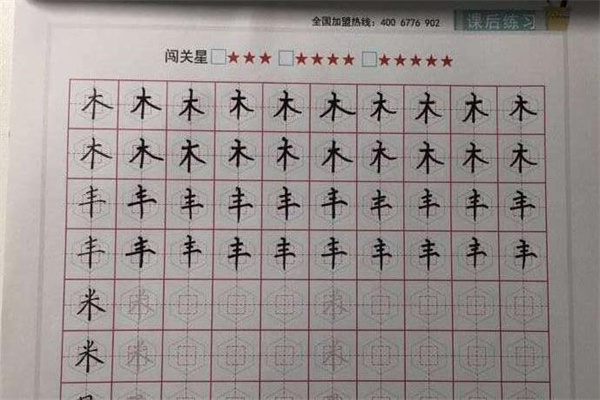 全国加盟热线：400 6776 902
课后练习
闯关星□★★★ □★★★★ □★★★★★
木木木木木木木木木木
木木木木木木木木木木
丰丰丰丰丰丰丰丰丰丰
丰丰丰丰丰丰丰丰丰丰
米米米
米米米